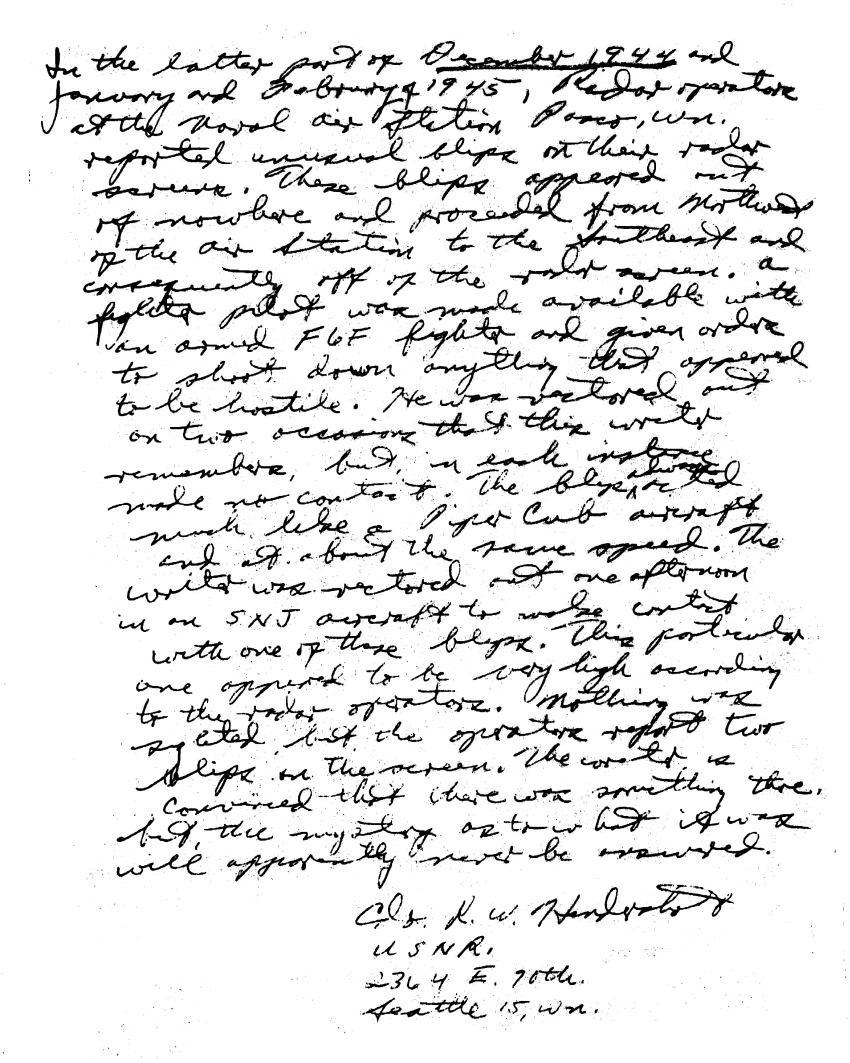 In the latter part of December 1944 and
January and February of 1945, Radar operators
at the Naval Air Station Pasco, Wn.
reported unusual blips on their radar
screens. These blips appeared out
of nowhere and proceeded from Northwest
of the air station to the Southeast and
consequently off of the radar screen. A
fighter pilot was made available with
an armed F6F fighter and given orders
to shoot down anything that appeared
to be hostile. He was vectored out
on two occasions that this writer
remembers, but, in each instance
made no contact. The blips always acted
much like a Piper Cub aircraft
and at about the same speed. The
writer was vectored out one afternoon
in an SNJ aircraft to make contact
with one of these blips. This particular
one appeared to be very high according
to the radar operators. Nothing was
sighted, but the operators report two
blips on the screen. The writer is
convinced that there was something there.
but, the mystery as to what it was
will apparently never be answered.
R. W.
USNR.
2364 E. 70th.
Seattle 15, Wn.